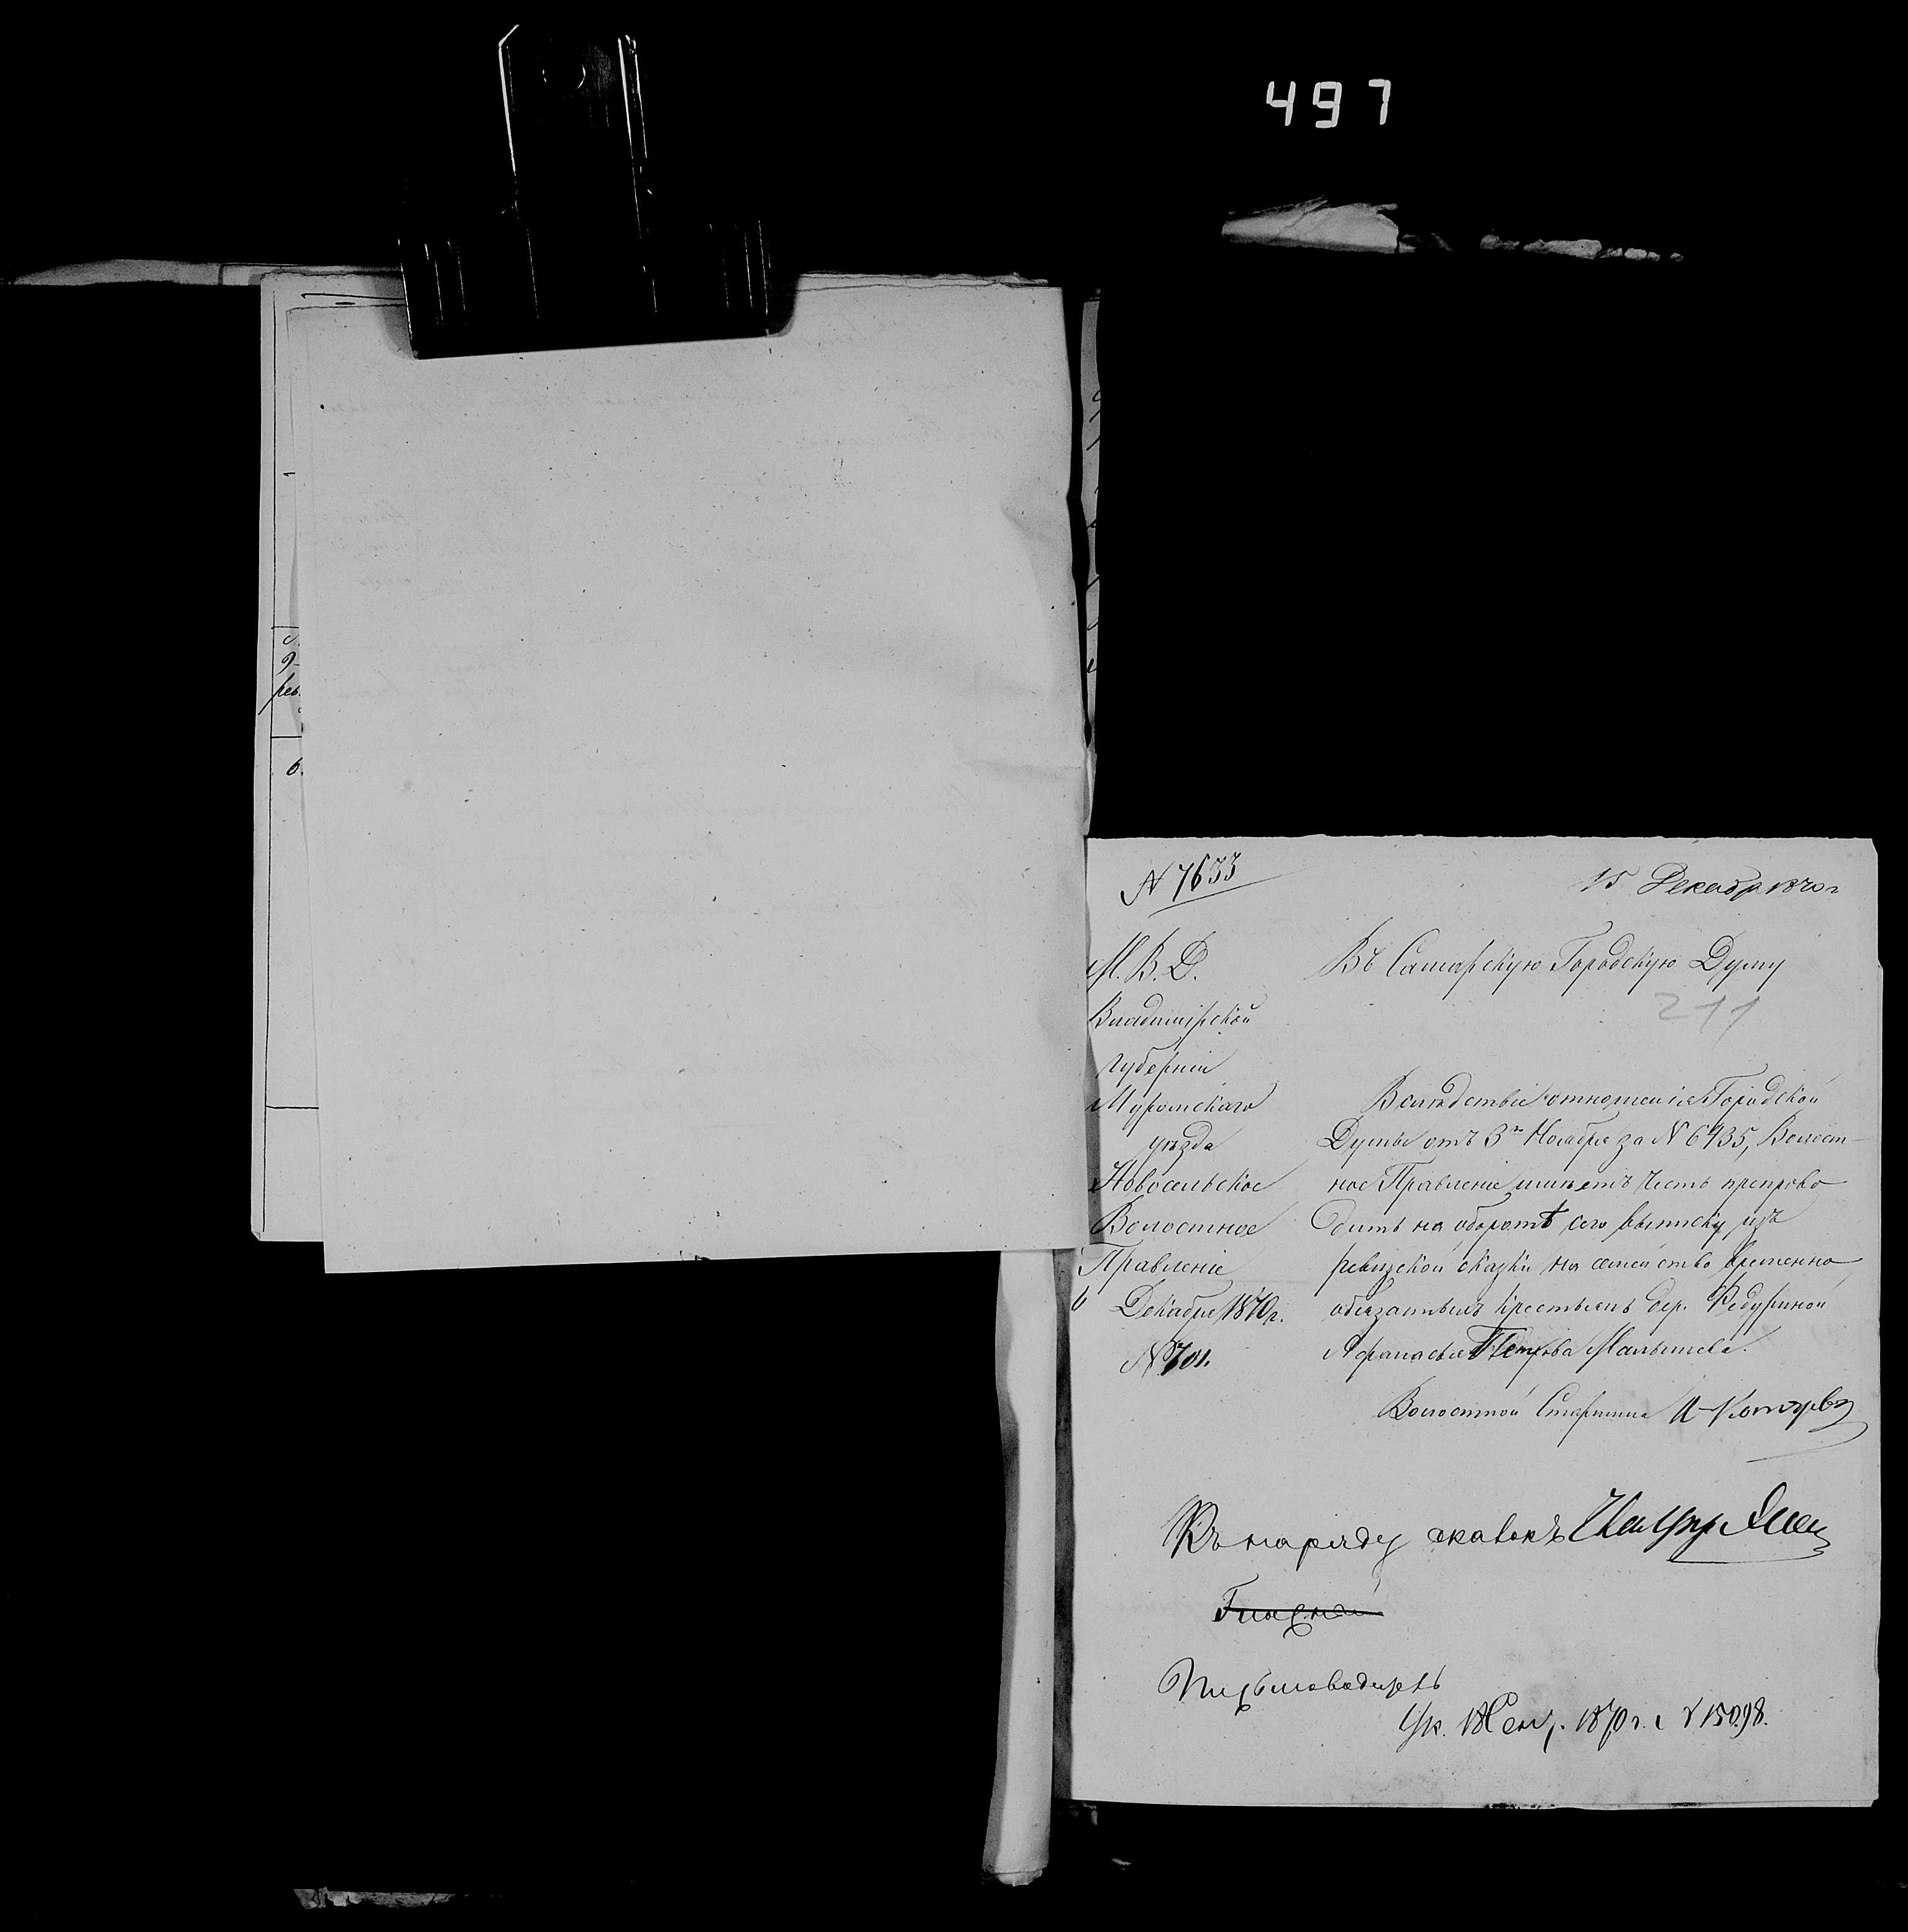 497
N 7633
15 Декабр 1870 г
М. В. Д.
Владимірской
губерніи
Муромскаго
уѣзда
Новосельское
Волостное
Правленіе
6 Декабря 1870 г.
N 701.
Въ Самарскую Городскую Думу
211
Вслѣдствіе отношенія Городской
Думы отъ 3го Ноября за N 6435, Волост-
ное Правленіе имѣетъ честь препрово
дить на оборотѣ сего выписку изъ
ревизской сказки на семейство временно
обязатныхъ крестьянъ дер. Федуриной
Афанасья Петрова Малышева.
Волостной Старшина
Къ наряду сказокъ
Гласный
Письмоводитель
1870 г. N 15098.